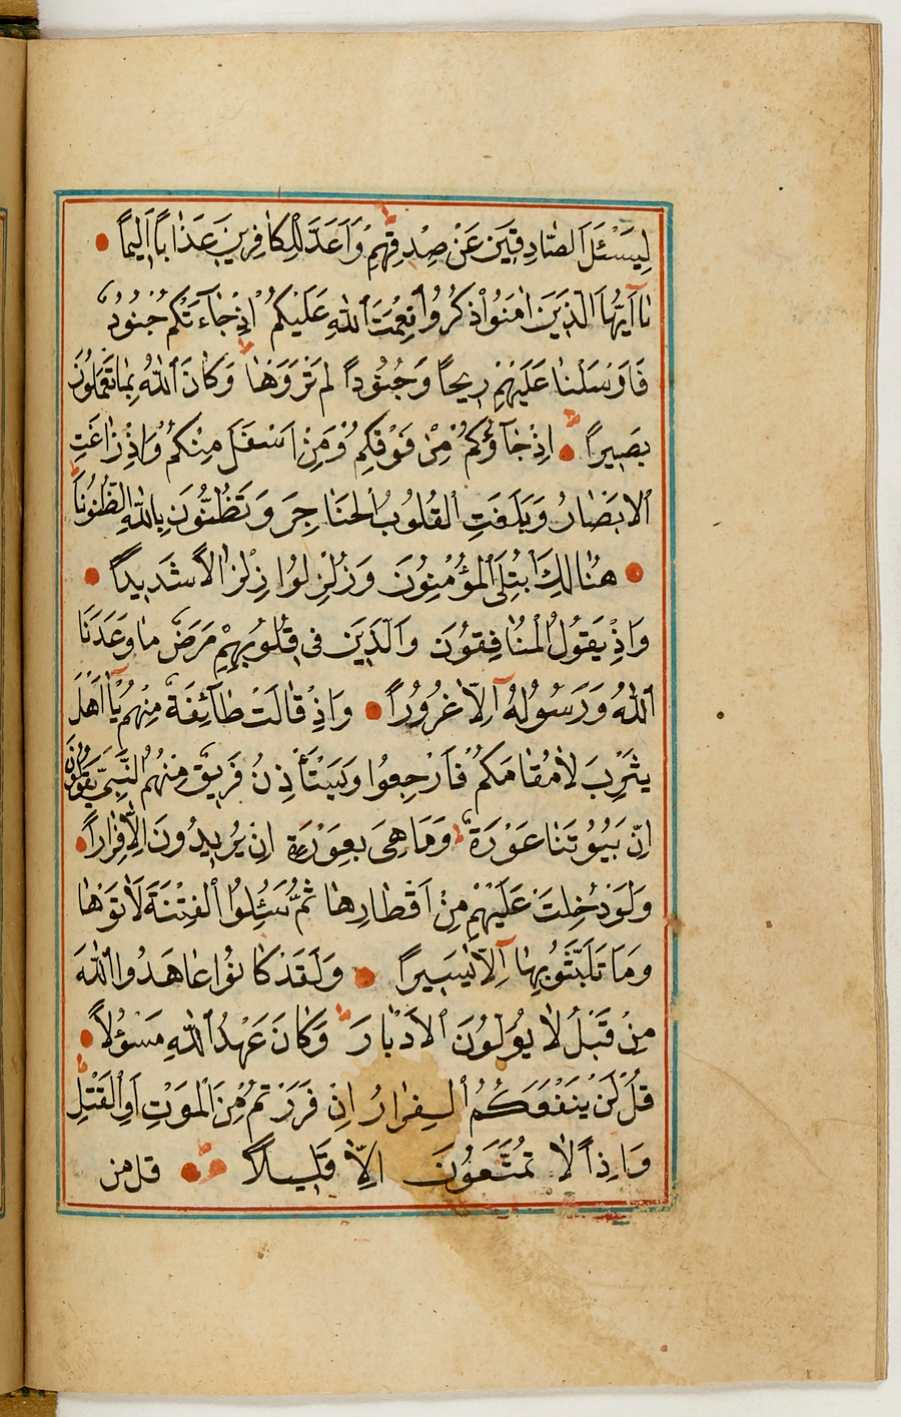 لِيَسْئَلَ الصَّادِقِينَ عَنْ صِدْقِهِمْ وَاَعَدَّ لِلْكَافِرِينَ عَذَابًا اَلِيمًا
يَآ اَيُّهَا الَّذِينَ اٰمَنُوا اذْكُرُوا نِعْمَتَ اللّٰهِ عَلَيْكُمْ اِذْ جَآءَتْكُمْ جُنُودٌ
فَاَرْسَلْنَا عَلَيْهِمْ رِيحًا وَجُنُودًا لَمْ تَرَوْهَا وَكَانَ اللّٰهُ بِمَا تَعْمَلُونَ
بَصِيرًا اِذْ جَآؤُكُمْ مِنْ فَوْقِكُمْ وَمِنْ اَسْفَلَ مِنْكُمْ وَاِذْ زَاغَتِ
الْاَبْصَارُ وَبَلَغَتِ الْقُلُوبُ الْحَنَاجِرَ وَتَظُنُّونَ بِاللّٰهِ الظُّنُونَا
هُنَالِكَ ابْتُلِيَ الْمُؤْمِنُونَ وَزُلْزِلُوا زِلْزَالًا شَدِيدًا
وَاِذْ يَقُولُ الْمُنَافِقُونَ وَالَّذِينَ فِى قُلُوبِهِمْ مَرَضٌ مَا وَعَدَنَا
اللّٰهُ وَرَسُولُهُ اِلَّا غُرُورًا وَاِذْ قَالَتْ طَآئِفَةٌ مِنْهُمْ يَآ اَهْلَ
يَثْرِبَ لَا مُقَامَ لَكُمْ فَارْجِعُوا وَيَسْتَأْذِنُ فَرِيقٌ مِنْهُمُ النَّبِيَّ يَقُولُونَ
اِنَّ بُيُوتَنَا عَوْرَةٌ وَمَا هِىَ بِعَوْرَةٍ اِنْ يُرِيدُونَ اِلَّا فِرَارًا
وَلَوْ دُخِلَتْ عَلَيْهِمْ مِنْ اَقْطَارِهَا ثُمَّ سُئِلُوا الْفِتْنَةَ لَاٰتَوْهَا
وَمَا تَلَبَّثُوا بِهَآ اِلَّا يَسِيرًا وَلَقَدْ كَانُوا عَاهَدُوا اللّٰهَ
مِنْ قَبْلُ لَا يُوَلُّونَ الْاَدْبَارَ وَكَانَ عَهْدُ اللّٰهِ مَسْؤُلًا
قُلْ لَنْ يَنْفَعَكُمُ الْفِرَارُ اِنْ فَرَرْتُمْ مِنَ الْمَوْتِ اَوِ الْقَتْلِ
وَاِذًا لَا تُمَتَّعُونَ اِلَّا قَلِيلًا قل من